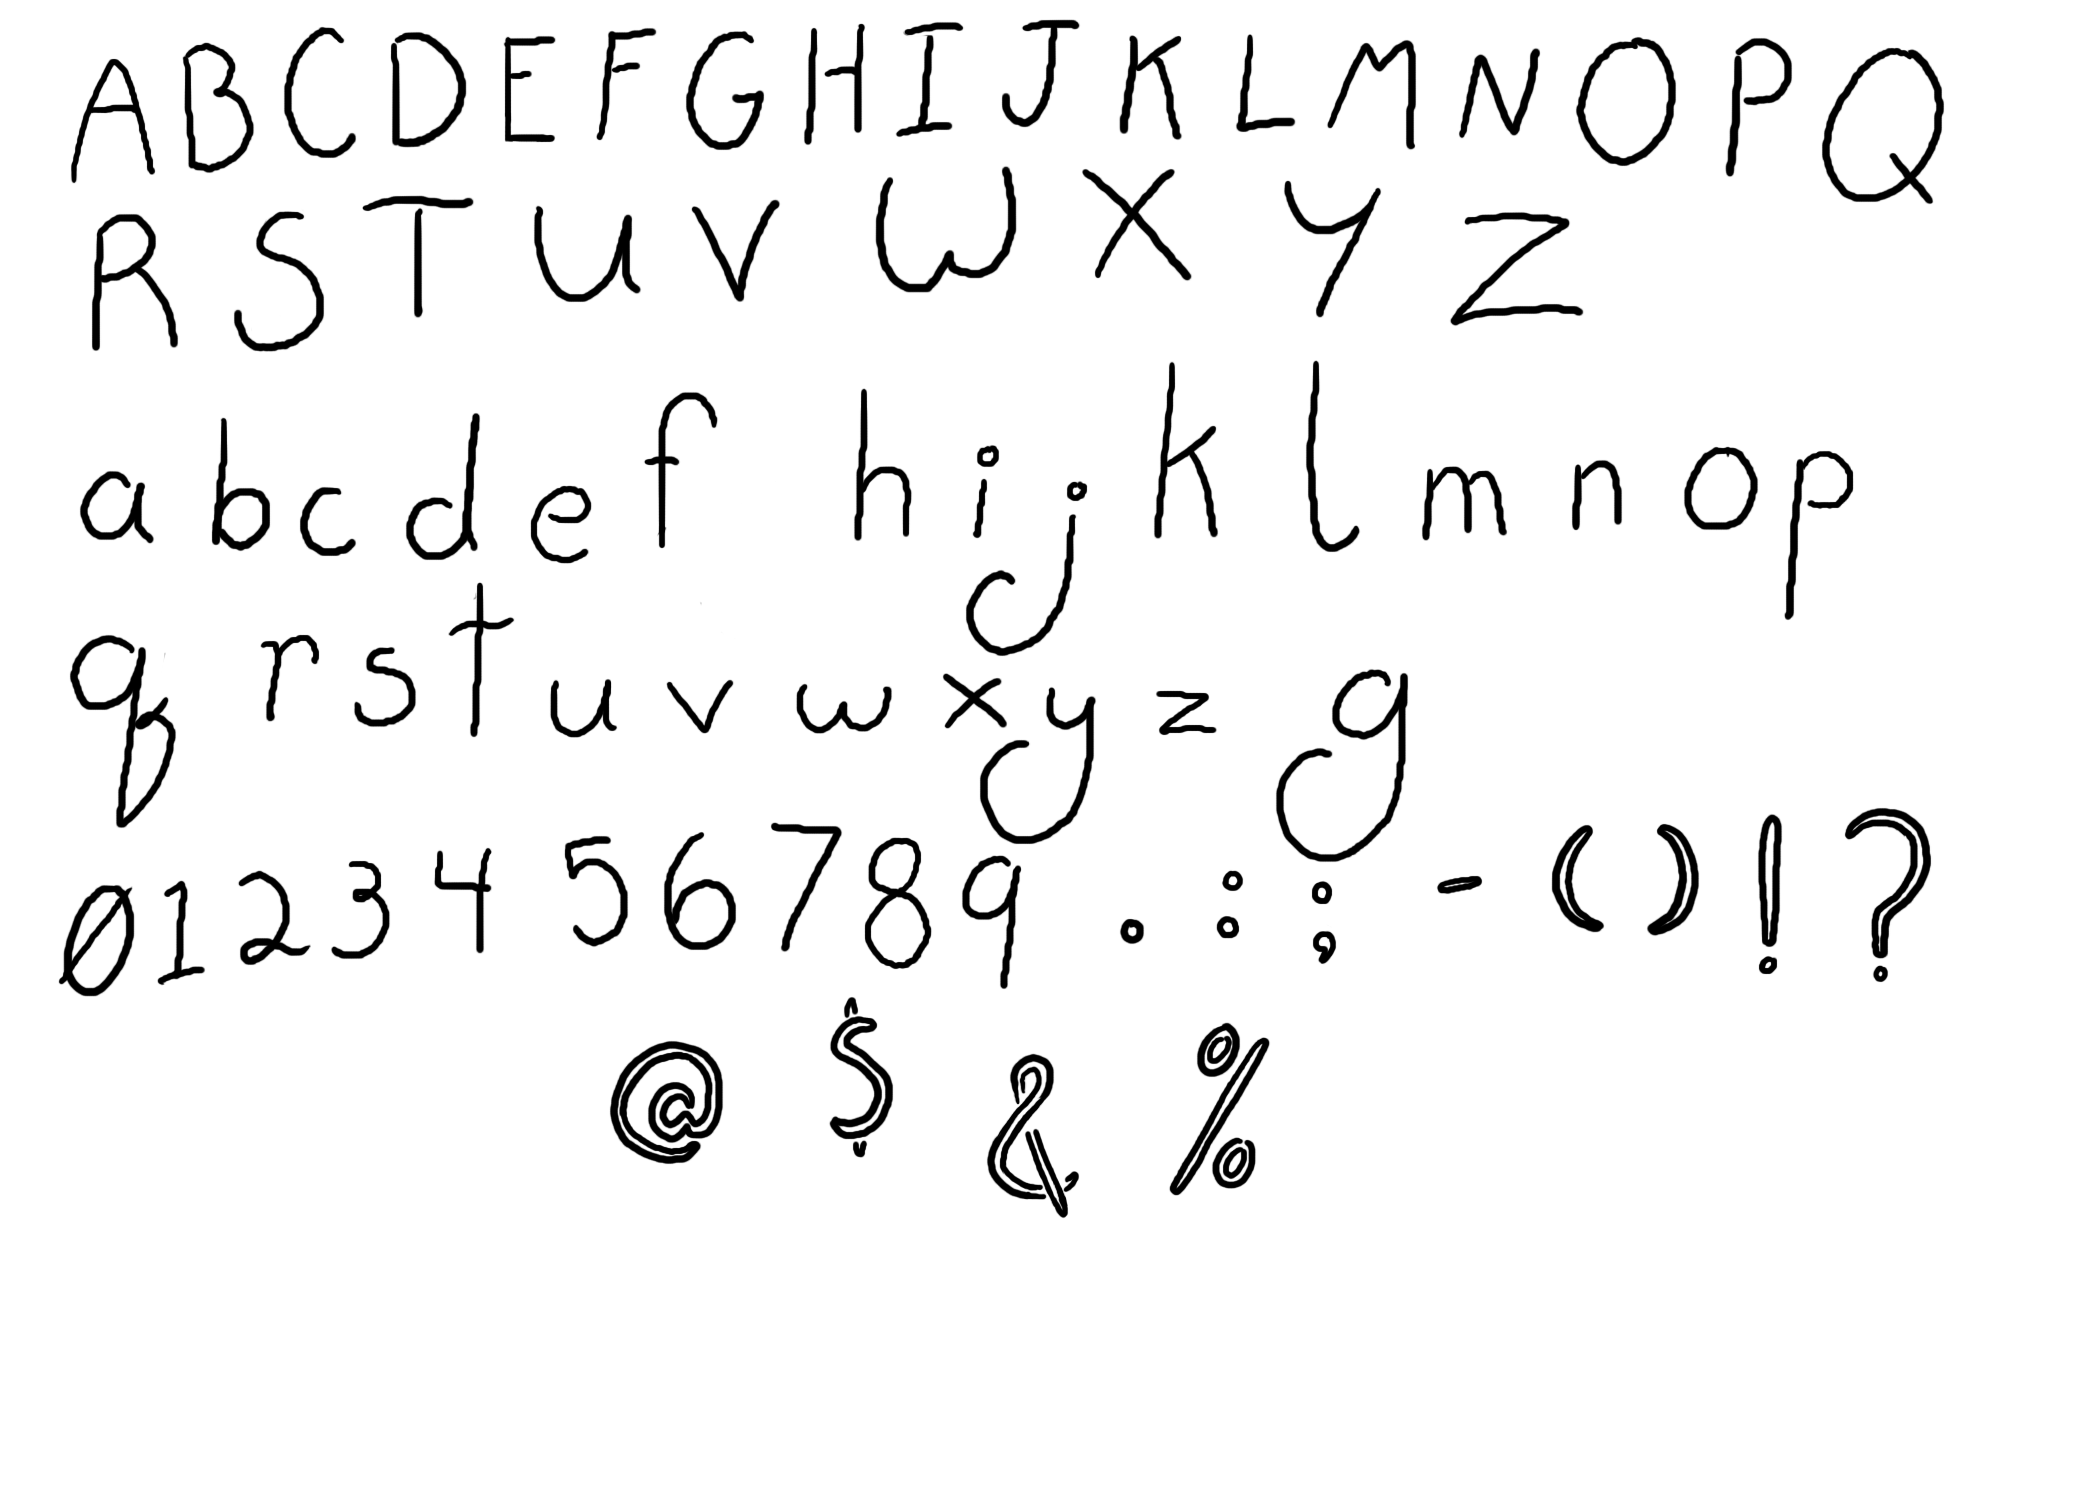 A B C D E F G H I J K L M N O P Q
R S T U V W X Y Z
a b c d e f h i j k l m n o p
q r s t u v w x y z g
0 1 2 3 4 5 6 7 8 9 . : ; - ( ) ! ?
@ $ & %